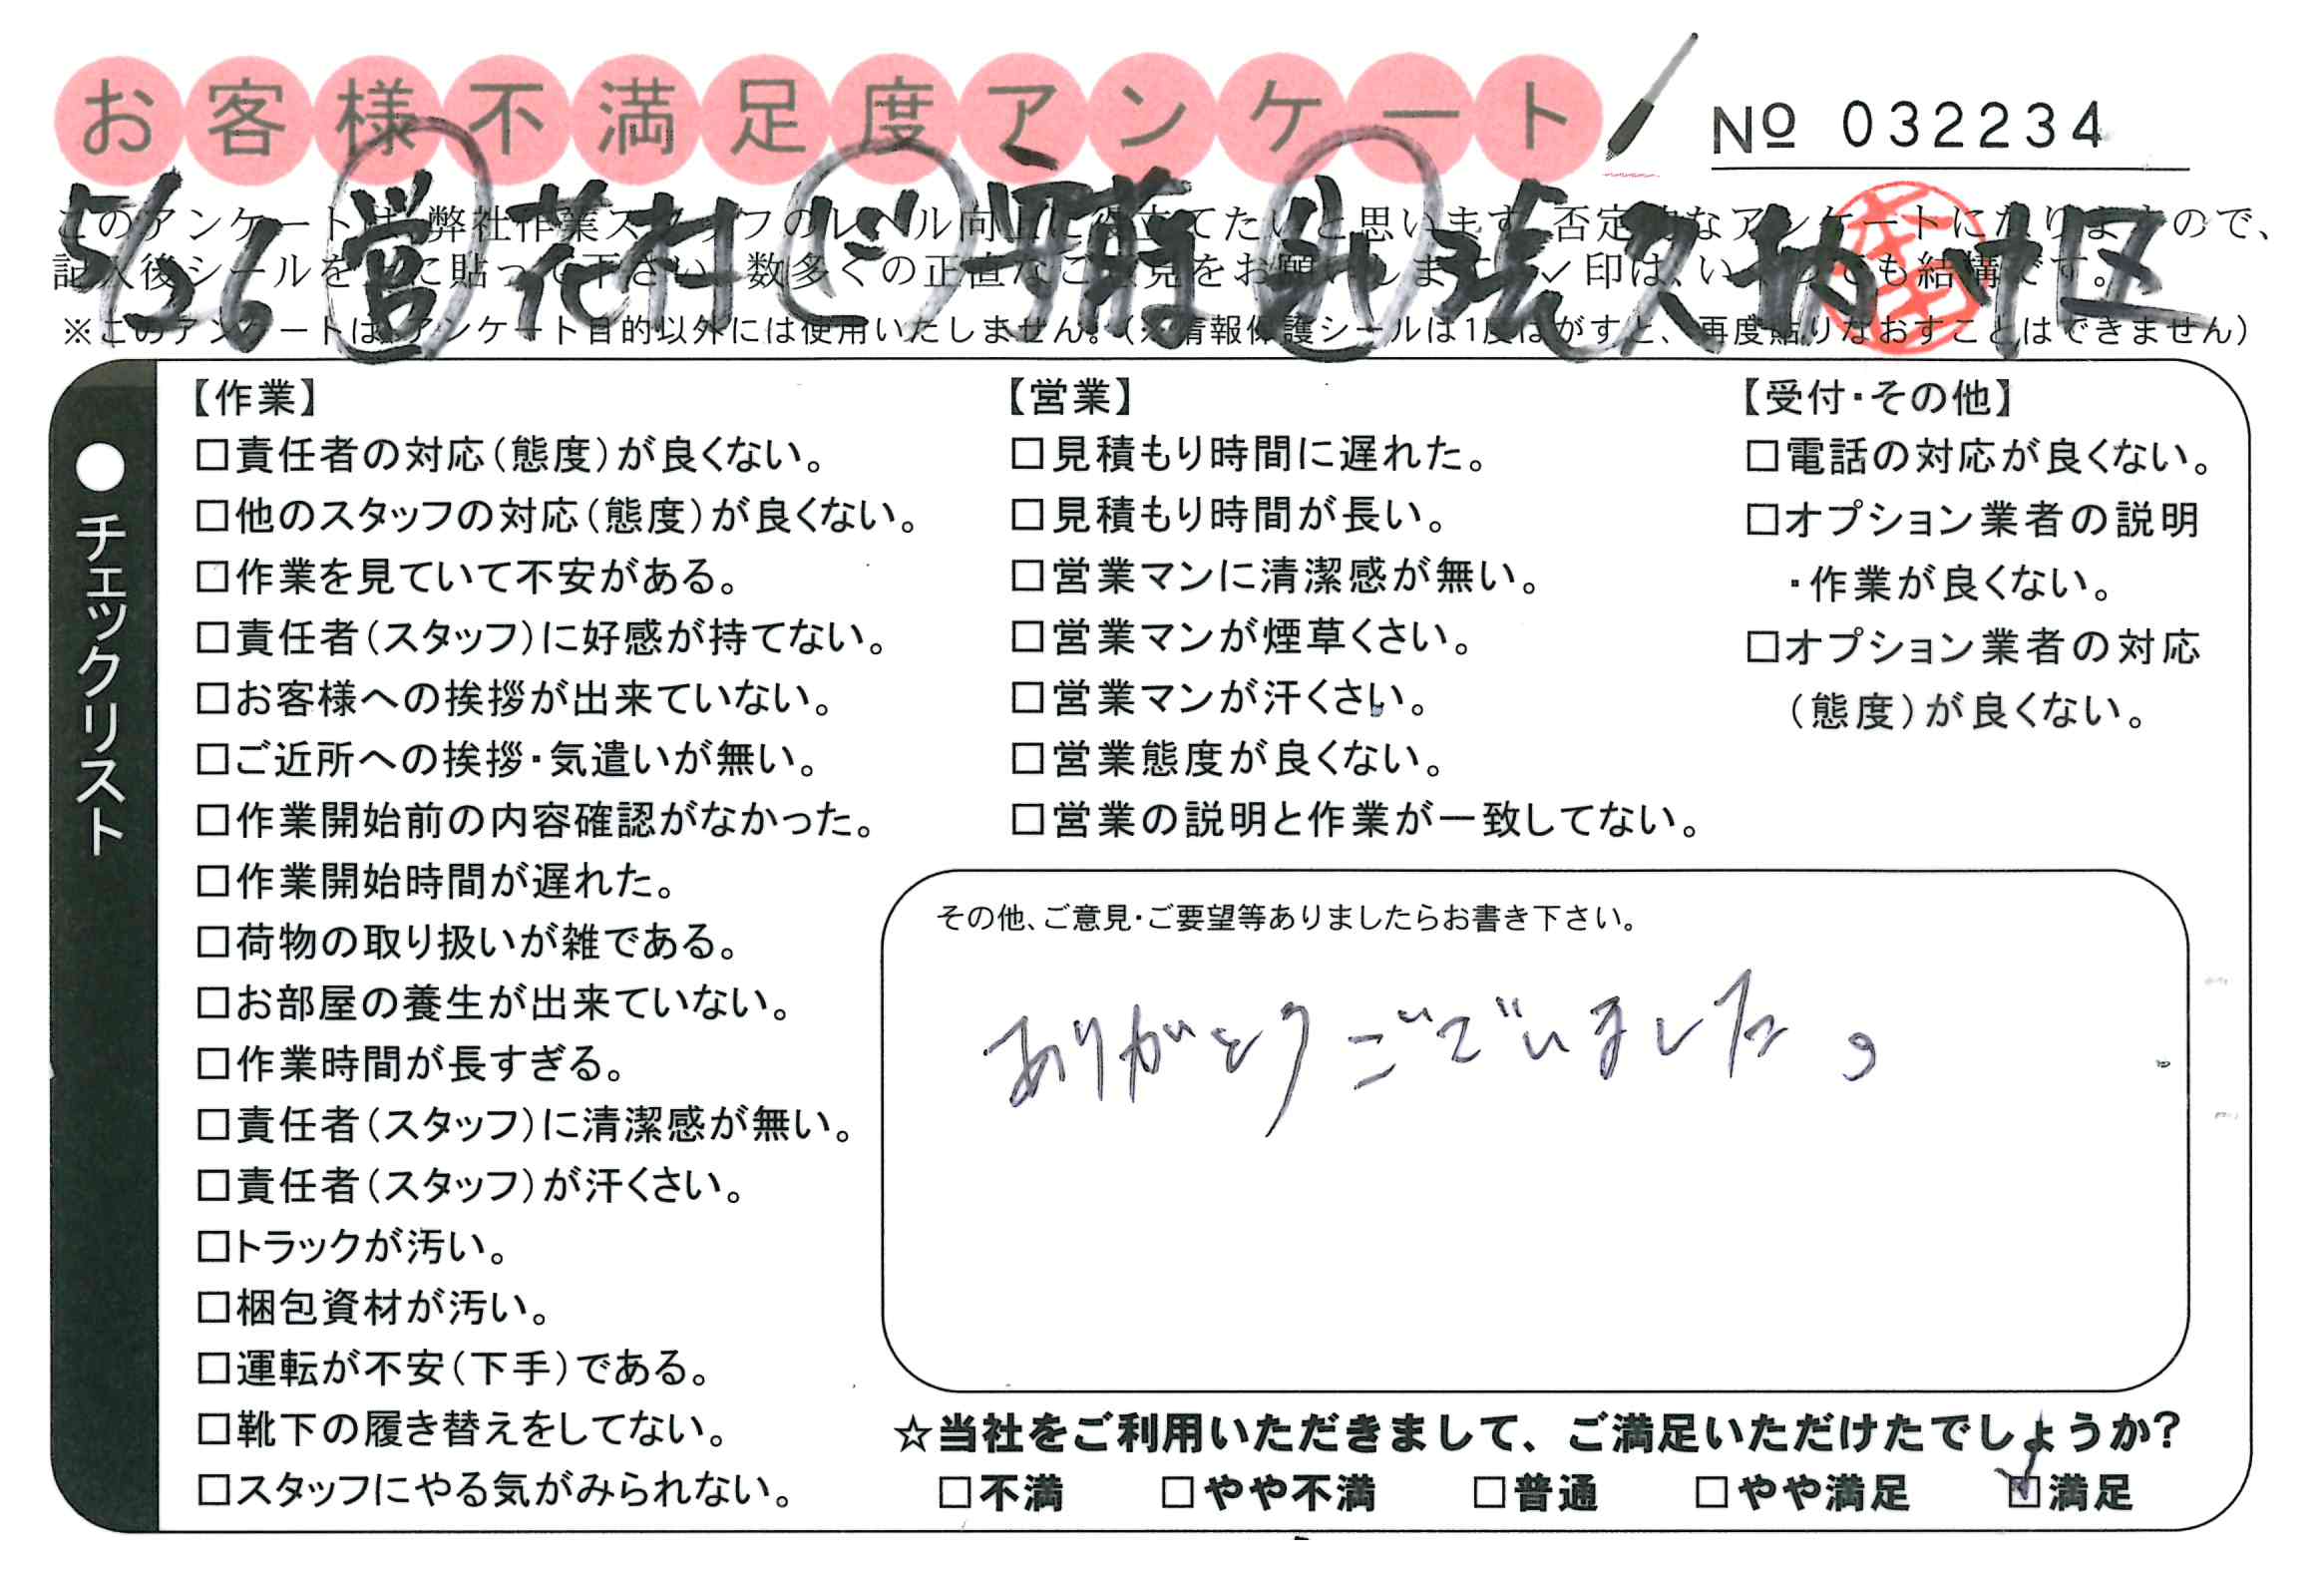 お客様不満足度アンケート
№ 032234
5/26 営 花村
このアンケートは、弊社作業スタッフのレベル向上に役立てたいと思います。否定的なアンケートになりますので、
記入後シールを上に貼って下さい。数多くの正直なご意見をお願いします。✓印は、いくつでも結構です。
※このアンケートは、アンケート目的以外には使用いたしません。(※情報保護シールは1度はがすと、再度貼りなおすことはできません)
●チェックリスト
【作業】
□責任者の対応(態度)が良くない。
□他のスタッフの対応(態度)が良くない。
□作業を見ていて不安がある。
□責任者(スタッフ)に好感が持てない。
□お客様への挨拶が出来ていない。
□ご近所への挨拶・気遣いが無い。
□作業開始前の内容確認がなかった。
□作業開始時間が遅れた。
□荷物の取り扱いが雑である。
□お部屋の養生が出来ていない。
□作業時間が長すぎる。
□責任者(スタッフ)に清潔感が無い。
□責任者(スタッフ)が汗くさい。
□トラックが汚い。
□梱包資材が汚い。
□運転が不安(下手)である。
□靴下の履き替えをしてない。
□スタッフにやる気がみられない。
【営業】
□見積もり時間に遅れた。
□見積もり時間が長い。
□営業マンに清潔感が無い。
□営業マンが煙草くさい。
□営業マンが汗くさい。
□営業態度が良くない。
□営業の説明と作業が一致してない。
【受付・その他】
□電話の対応が良くない。
□オプション業者の説明
・作業が良くない。
□オプション業者の対応
(態度)が良くない。
その他、ご意見・ご要望等ありましたらお書き下さい。
ありがとうございました。
☆当社をご利用いただきまして、ご満足いただけたでしょうか?
□不満 □やや不満 □普通 □やや満足 ☑満足